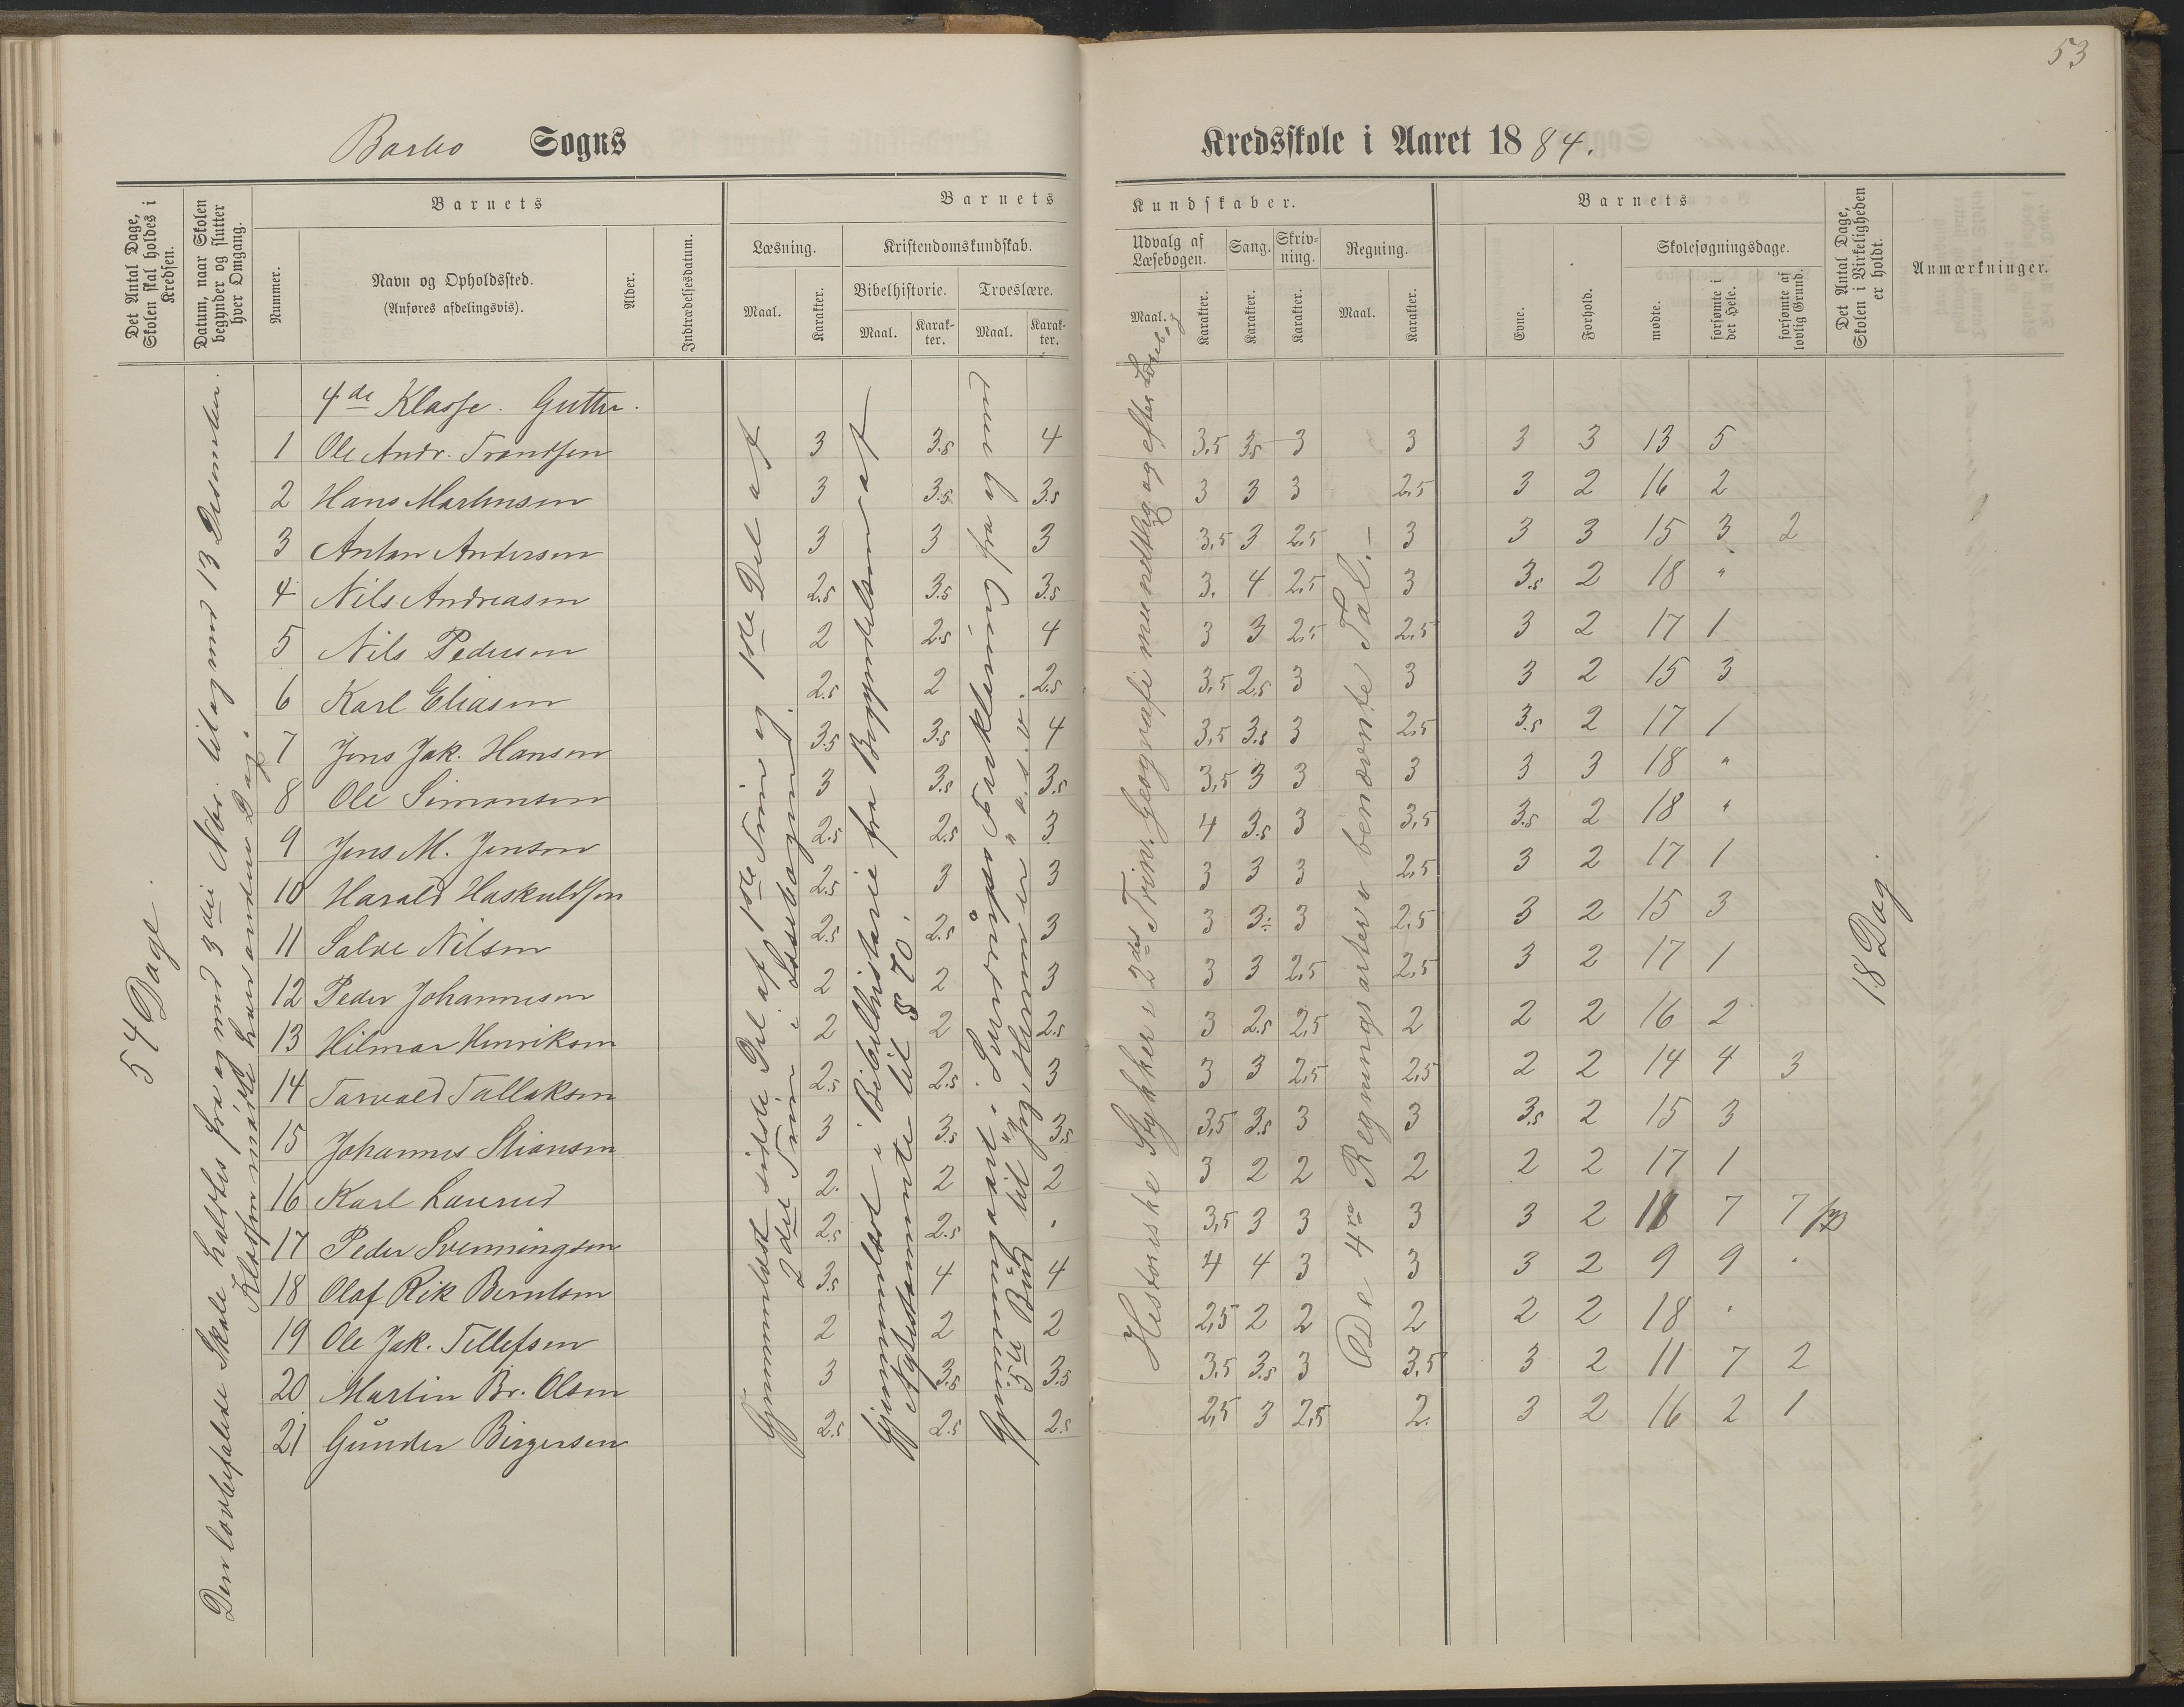 53
Barbo Sogns
Kredsskole i Aaret 1884.
Det Antal Dage, Skolen skal holdes i Kredsen.
Datum, naar Skolen begynder og slutter hver Omgang.
Barnets
Nummer.
Navn og Opholdssted.
(Anføres afdelingsvis).
Alder.
Indtrædelsesdatum.
Barnets
Læsning.
Maal.
Karakter.
Kristendomskundskab.
Bibelhistorie.
Maal.
Karakter.
Troeslære.
Maal.
Karakter.
Kundskaber.
Udvalg af Læsebogen.
Maal.
Karakter.
Sang.
Karakter.
Skrivning.
Karakter.
Regning.
Maal.
Karakter.
Barnets
Evne.
Forhold.
Skolesøgningsdage.
mødte.
forsømte i det Hele.
forsømte af lovlig Grund.
Det Antal Dage, Skolen i Virkeligheden er holdt.
Anmærkninger.
54 Dage.
Den lovbefalede Skole holdtes fra og med 3die Nbr. til og med 13 Desember.
Klassen mødte hver anden Dag.
Gjennemlæst sidste Del af 1ste Trin og 1ste Del af
2det Trin i Læsebogen.
Gjennemlæst i Bibelhistorie fra Begyndelsen af
Nytestamente til § 70.
Gjennemgaaet i Sverdrups Forklaring fra og med
5te Bud til "Jeg Kommer" o.s.v.
Historiske Stykker i 2det Trin. Geografi mundtlig og efter Læsebog
De 4re Regningsarter i benævnte Tal.
18 Dag.
4de Klasse. Gutter.
1 Ole Andr. Trondsen 3 3.5 4 3,5 3.5 3 3 3 3 13 5
2 Hans Martinsen 3 3.5 3.5 3 3 3 2,5 3 2 16 2
3 Anton Andersen 3 3 3 3,5 3 2,5 3 3 3 15 3 2
4 Nils Andreasen 2.5 3.5 3.5 3. 4 2,5 3 3.5 2 18 "
5 Nils Pedersen 2 2.5 4 3 3 2,5 2,5 3 2 17 1
6 Karl Eliasen 2.5 2 2.5 3,5 2.5 3 3 3 2 15 3
7 Jens Jak. Hansen 3.5 3.5 4 3,5 3.5 3 2,5 3.5 2 17 1
8 Ole Simonsen 3 3.5 3.5 3,5 3 3 3 3 3 18 "
9 Jens M. Jensen 2.5 2.5 3 4 3.5 3 3,5 3.5 2 18 "
10 Harald Haskuldsen 2.5 3 3 3 3 3 2,5 3 2 17 1
11 Salve Nilsen 2.5 2.5 3 3 3 3 2,5 3 2 15 3
12 Peder Johannesen 2 2 3 3 3 2,5 2,5 3 2 17 1
13 Hilmar Henriksen 2 2 2.5 3 2.5 2,5 2 2 2 16 2
14 Torvald Tallaksen 2.5 2.5 3 3 3 2,5 2,5 2 2 14 4 3
15 Johannes Stiansen 3 3.5 3.5 3,5 3.5 3 3 3.5 2 15 3
16 Karl Laurud 2. 2 2 3 2 2 2 2 2 17 1
17 Peder Svenningsen 2.5 2.5 . 3,5 3 3 3 3 2 11 7 7
18 Olaf Rik Berntsen 3.5 4 4 4 4 3 3 3 2 9 9 .
19 Ole Jak. Tellefsen 2 2 2 2,5 2 2 2 2 2 18 .
20 Martin Br. Olsen 3 3.5 3.5 3,5 3.5 3 3,5 3 2 11 7 2
21 Gunder Birgersen 2.5 2.5 2.5 2,5 3 2,5 2. 3 2 16 2 1